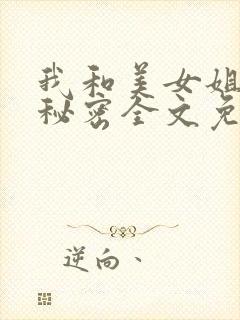 我和美女姐
秘密全文免
逆向、